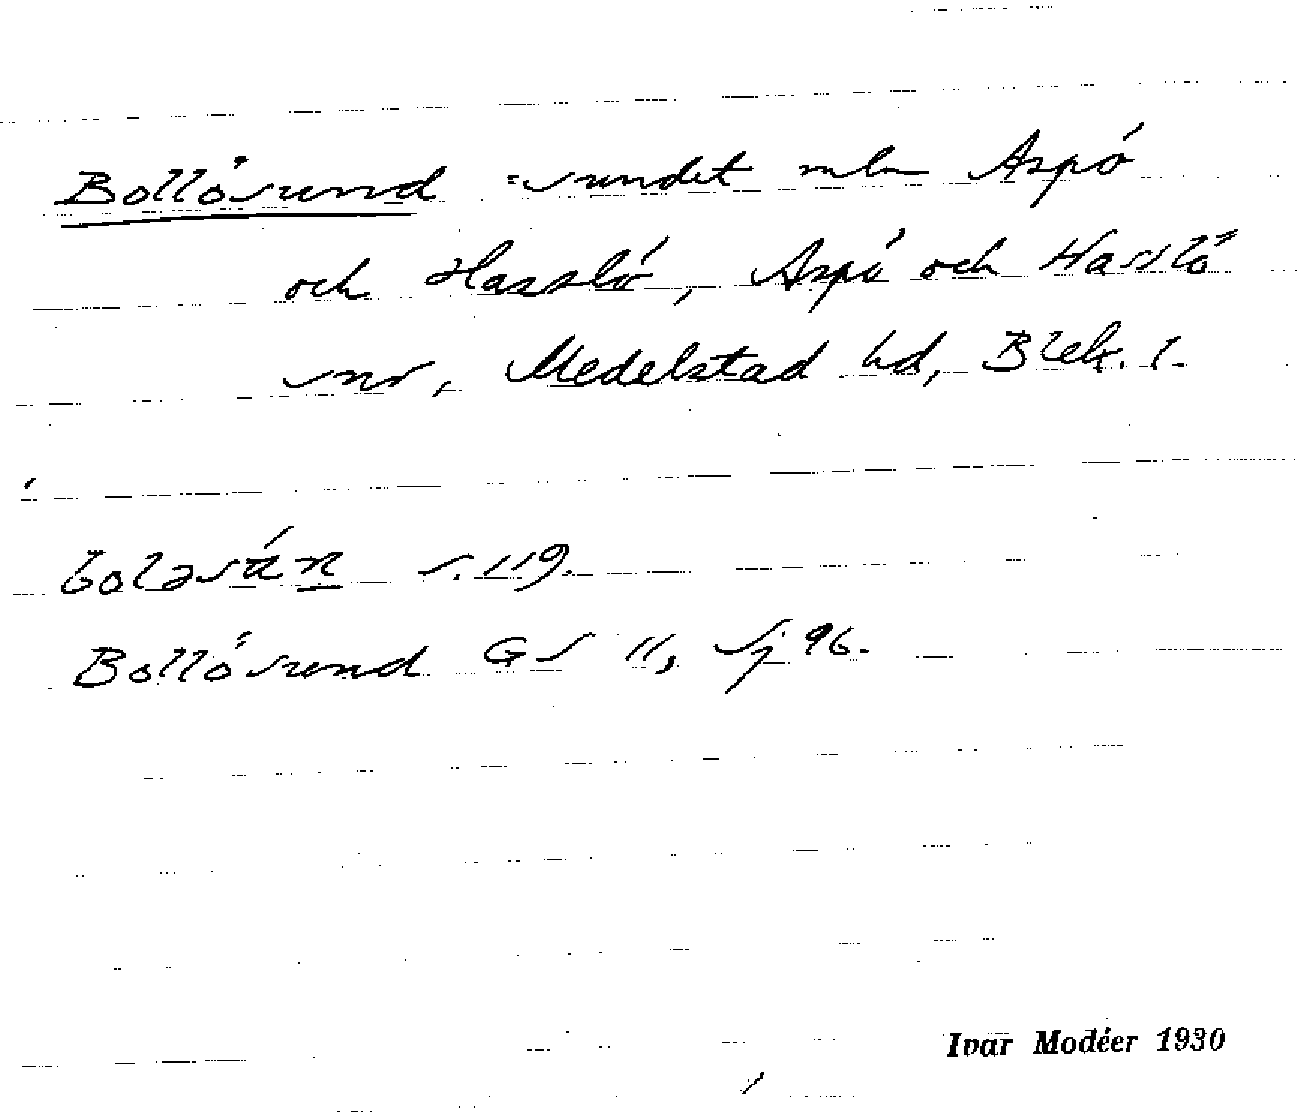 Bollösund = sundet mlm Aspö
och Hasslö, Aspö och Hasslö
snr, Medelstad hd, Blek. l.
s. 119.
Bollösund GS 11, Sj 96.
Ivar Modéer 1930